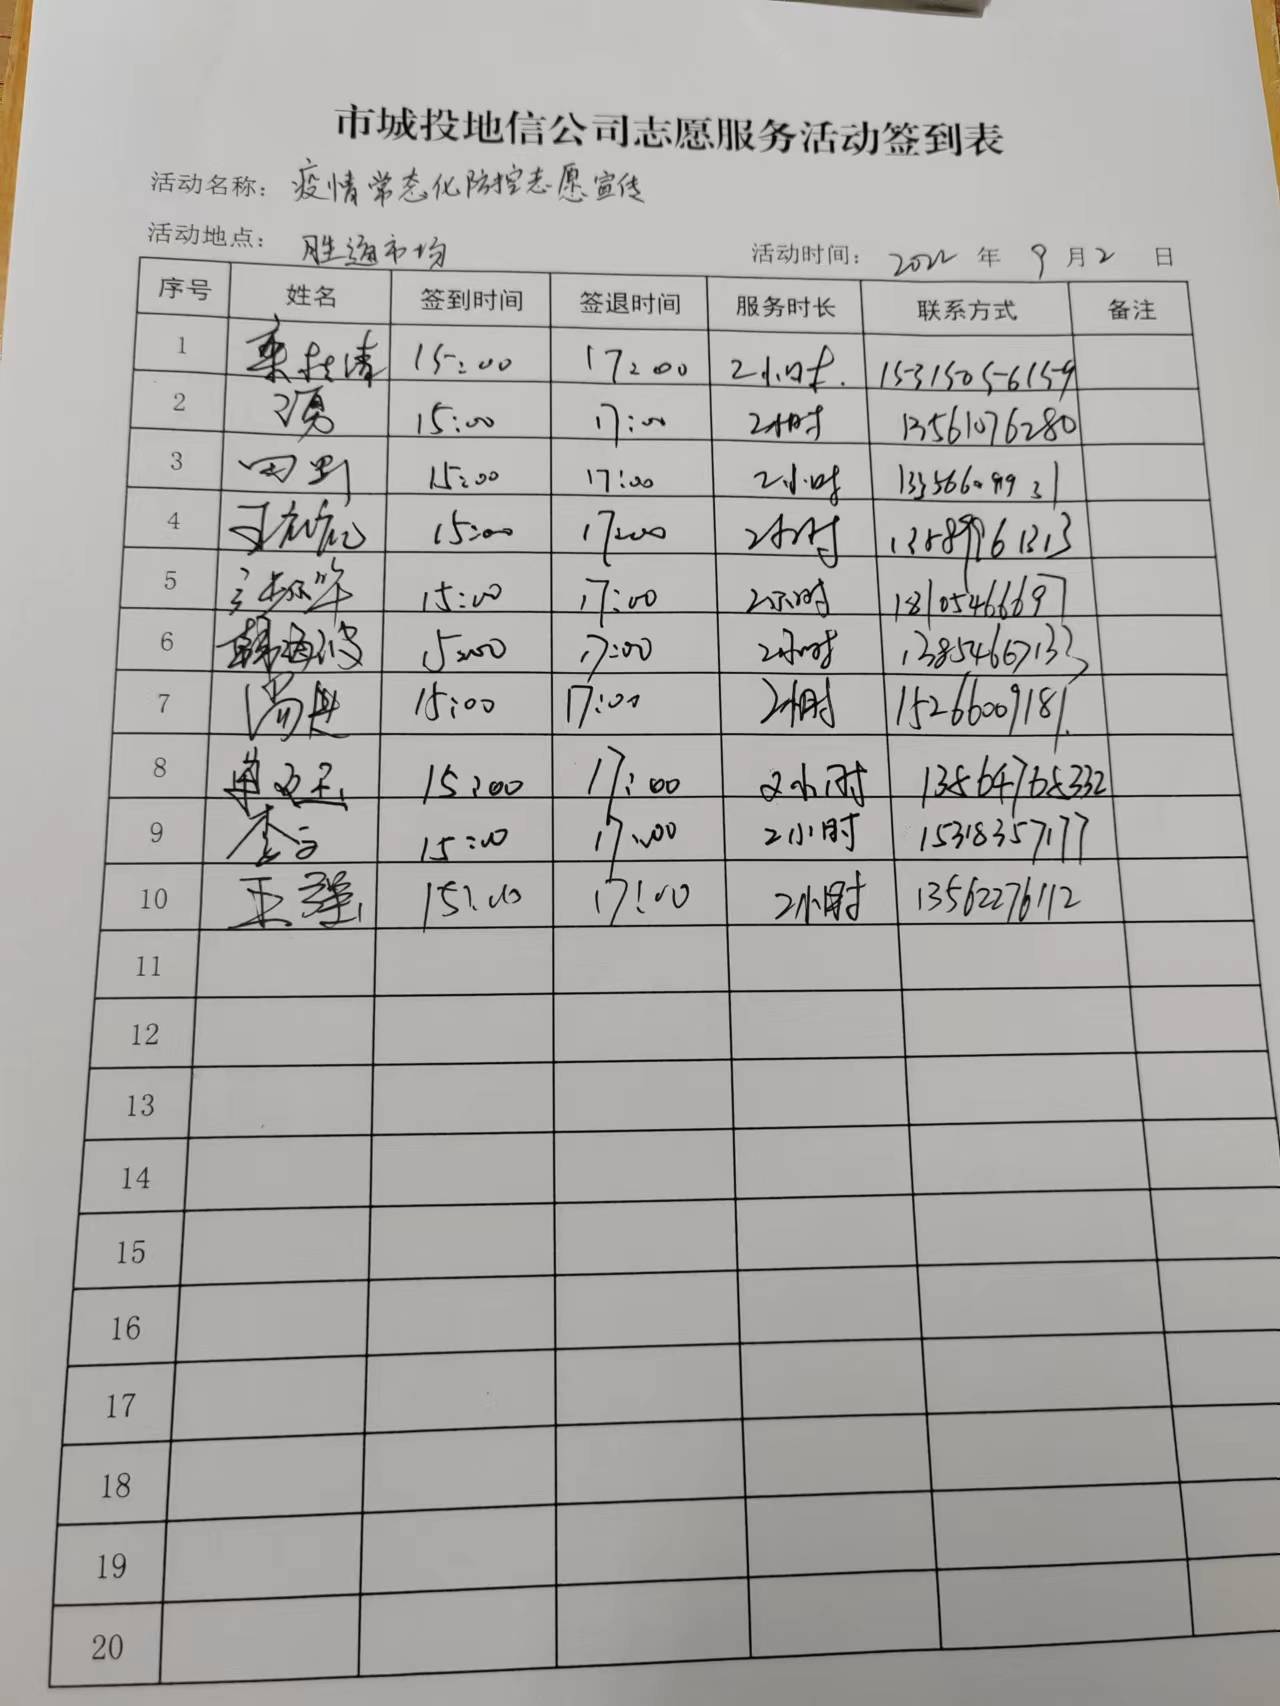 市城投地信公司志愿服务活动签到表
活动名称： 疫情常态化防控志愿宣传
活动地点： 胜通市场 活动时间： 2022 年 9 月 2 日
序号 姓名 签到时间 签退时间 服务时长 联系方式 备注
1 15:00 17:00 2小时. 15315056159
2 15:00 17:00 2小时 13561076280
3 田野 15:00 17:00 2小时
4 15:00 17:00 2小时 13589961313
5 15:00 17:00 2小时 18105466697
6 韩海波 15:00 17:00 2小时 13854667133
7 15:00 17:00 2小时 15266009181
8 15:00 17:00 2小时 13564765332
9 15:00 17:00 2小时 15318357177
10 王强 15:00 17:00 2小时 13562276112
11
12
13
14
15
16
17
18
19
20